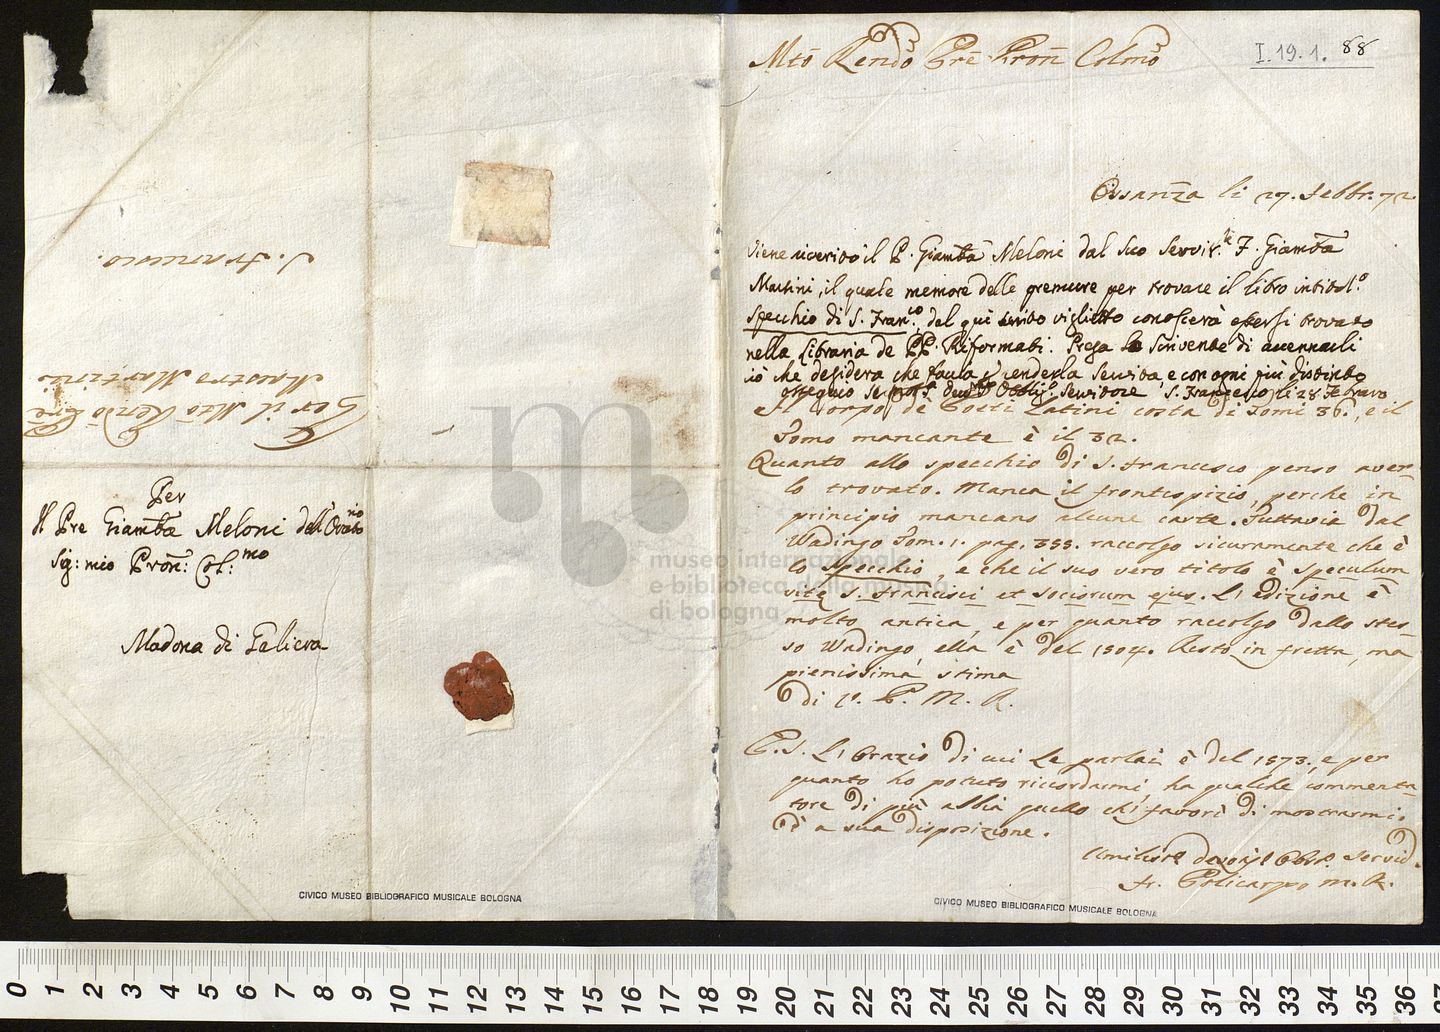 S. Francesco.
Per il Mto Rendo Pre
Maestro Martini
Per
Il Pre Giamba Meloni dell'Orato.rio
Sig: mio Pron: Col:mo
Madona di Galiera
CIVICO MUSEO BIBLIOGRAFICO MUSICALE BOLOGNA
Mto Rendo Pre Pron Colmo
I.19.1. 88
Ossanza li 27. Febbr. 72
Viene riverito il P. Giamba Meloni dal suo Servit.re F. Giamba
Martini, il quale memore delle premure per trovare il libro intitol.o
Specchio di S. Fran.co, del qui unito viglietto conoscerà essersi trovato
nella Libraria de PP. Riformati. Prega lo Scrivente di accennarli
ciò che desidera che faccia p renderla servita, e con ogni più distinto
ossequio Servitore S. Francesco li 28 Febraro
Il Corpo de Poeti Latini costa di Tomi 36., e il
Tomo mancante è il 32.
Quanto allo specchio di S. Francesco penso aver-
lo trovato. Manca il frontispizio, perche in
principio mancano alcune carte. Tuttavia dal
Wadingo Tom. 1. pag. 355. raccolgo sicuramente che è
lo Specchio, e che il suo vero titolo è Speculum
vitæ S. Francisci et Sociorum ejus. L' edizione è
molto antica, e per quanto raccolgo dallo stes-
so Wadingo, ella è del 1504. Resto in fretta, ma
pienissima stima
Di V. P. M. R.
P. S. L' Orazio di cui Le parlai è del 1573., e per
quanto ho potuto ricordarmi, ha qualche commenta
tore di più abbia quello chi favorì di mostrarmi.
È a sua disposizione.
Umilissº devotiº Obblº. Servid.
fr. Policarpo M. R.
CIVICO MUSEO BIBLIOGRAFICO MUSICALE BOLOGNA
museo internazionale
e biblioteca della musica
di bologna
0 1 2 3 4 5 6 7 8 9 10 11 12 13 14 15 16 17 18 19 20 21 22 23 24 25 26 27 28 29 30 31 32 33 34 35 36 37